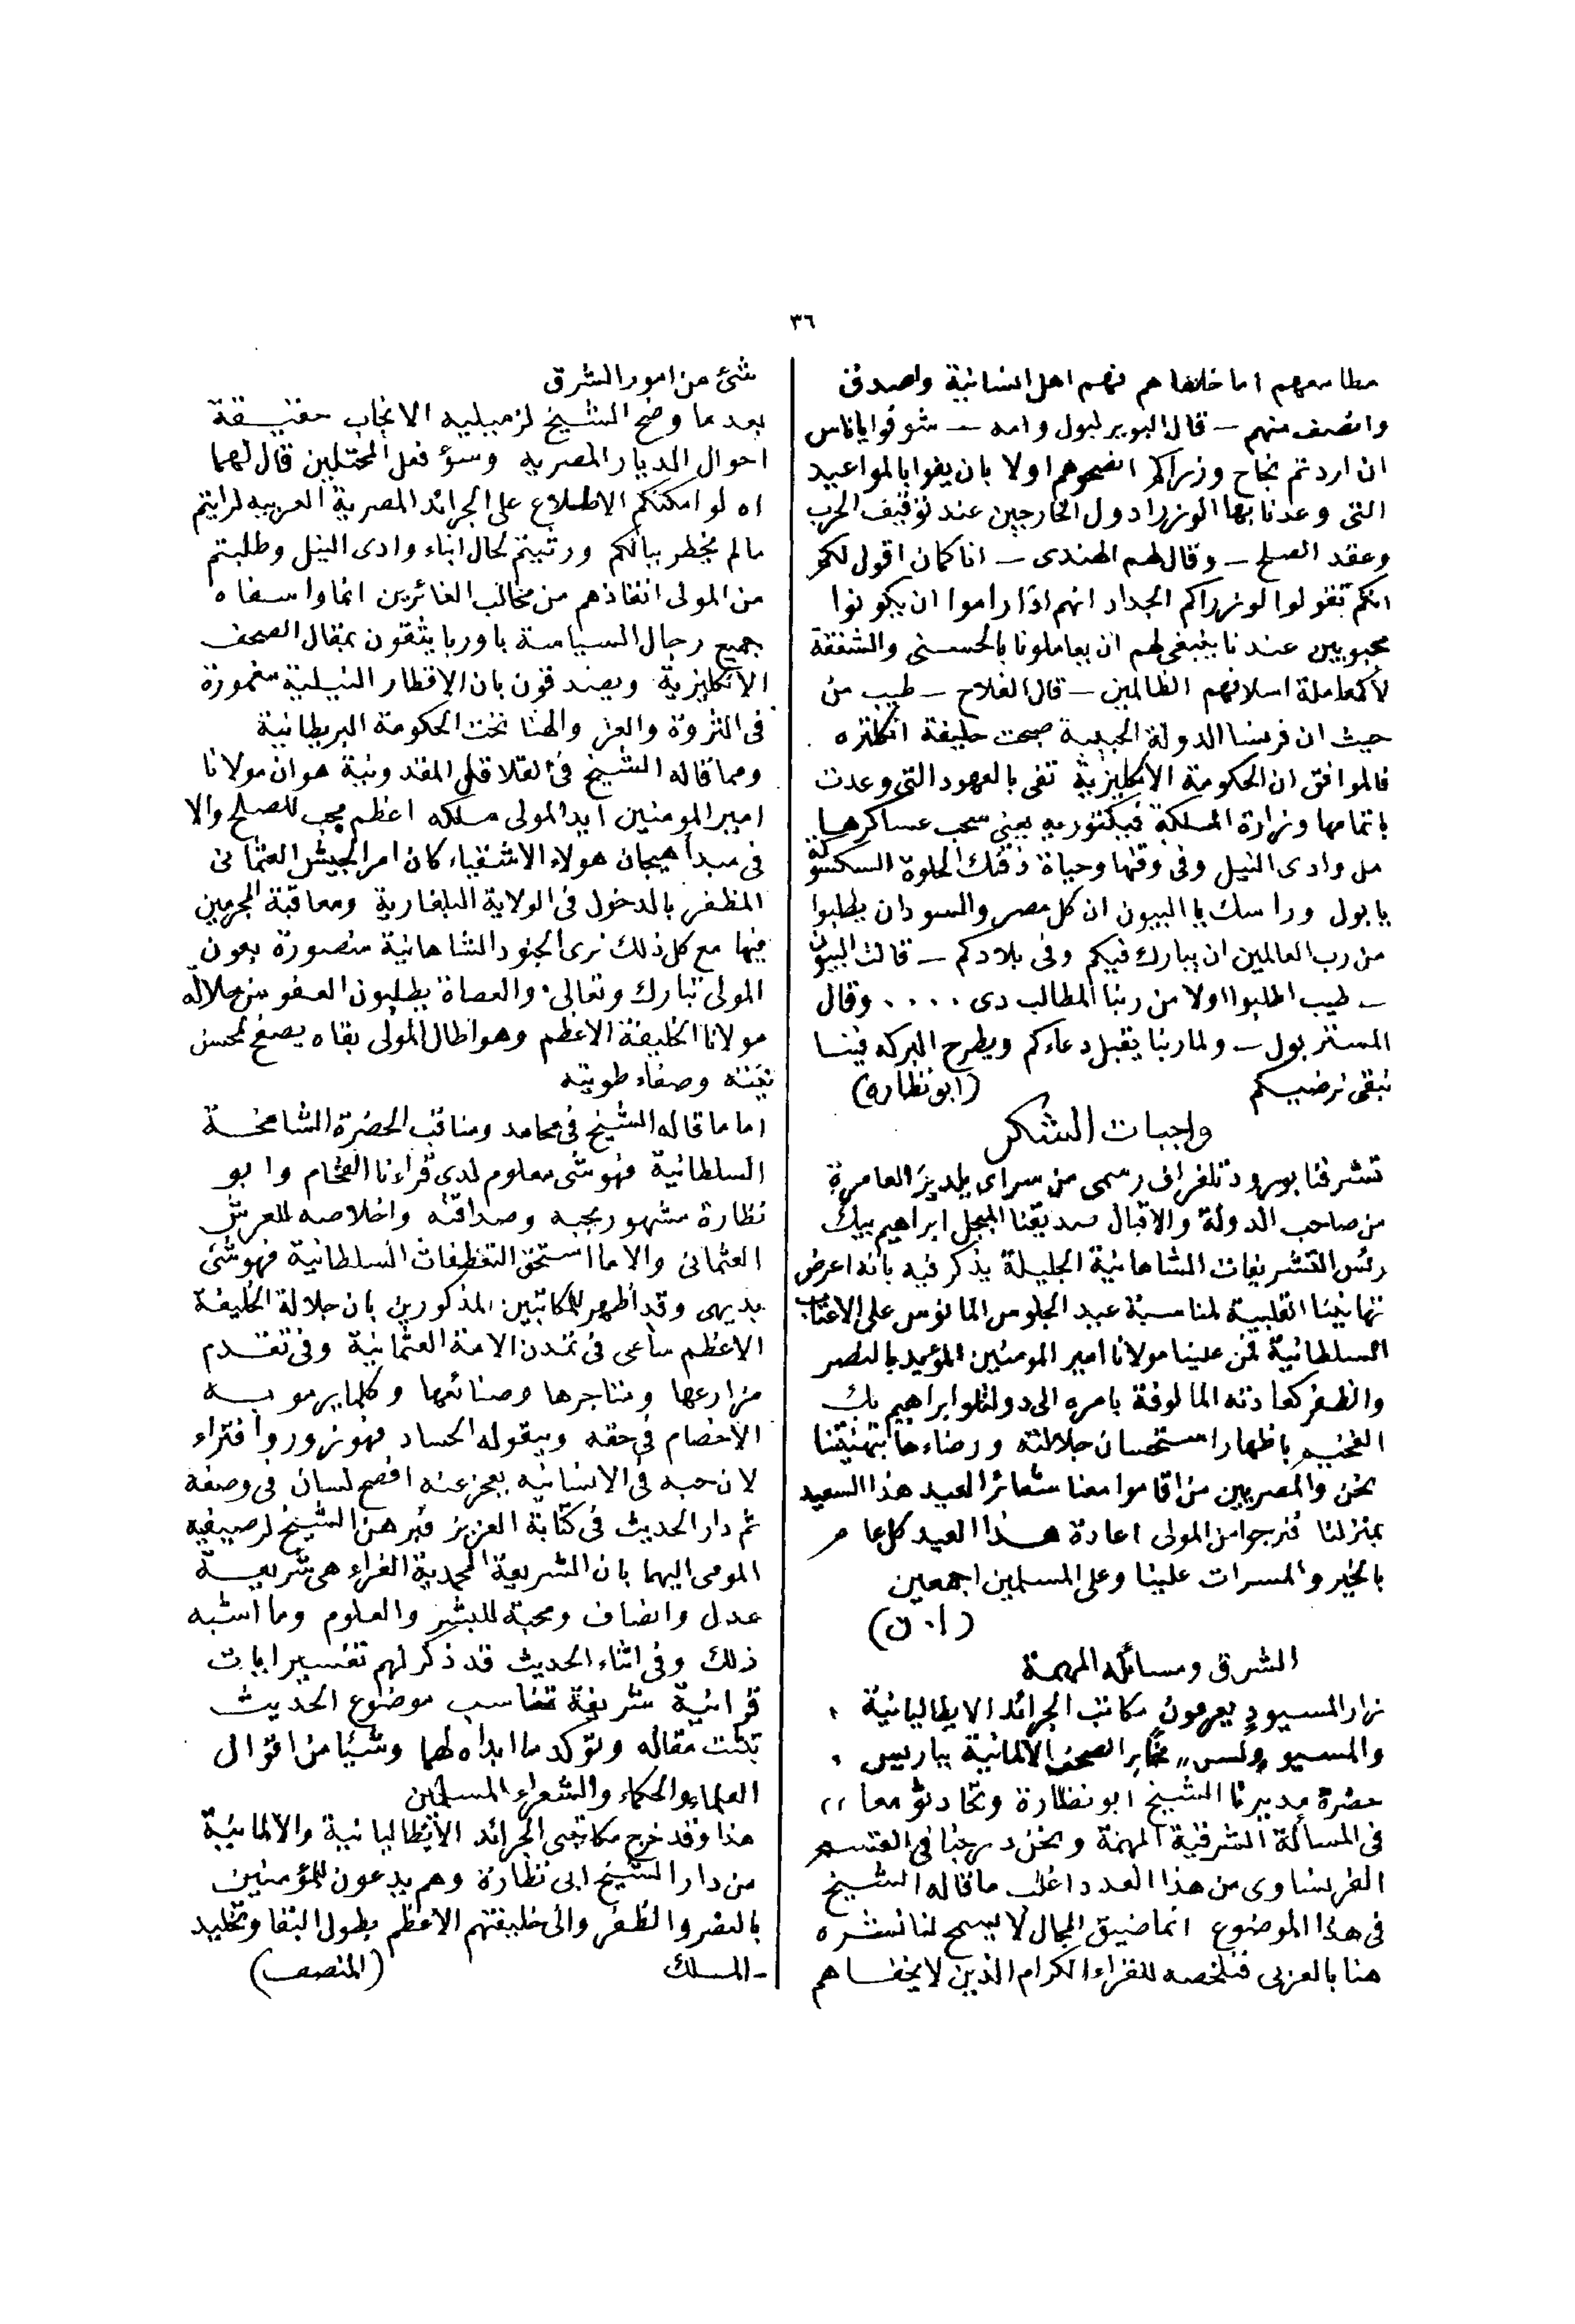 ٣٦
مطامعهم اما خلافاهم فهم اهل انسانية واصدق
وانصف منهم – قال البوير لبول وامه – شوفوا ياناس
ان اردتم نجاح وزراكم انصحوهم اولا بان يفوا بالمواعيد
التى وعدنا بها الوزرا دول الخارجين عند توقيف الحرب
وعقد الصلح – وقال لهم الهندى – انا كمان اقول لكم
انكم تقولوا لوزراكم الجداد انهم اذا راموا ان يكونوا
محبوبين عندنا ينبغى لهم ان يعاملونا بالحسنى والشفقة
لا كمعاملة اسلافهم الظالمين – قال الفلاح – طيب من
حيث ان فرنسا الدولة الحبيبة صبحت حليفة انكلتره
فالموافق ان الحكومة الانكليزية تفى بالعهود التى وعدت
باتمامها وزارة الملكة فيكتوريه يعنى سحب عساكرها
من وادى النيل وفى وقتها وحياة ذقنك الحلوة السكسوكة
يا بول وراسك يا البيون ان كل مصر والسودان يطلبوا
من رب العالمين ان يبارك فيكم وفى بلادكم – قالت البيون
– طيب اطلبوا اولا من ربنا المطالب دى .... وقال
المستر بول – ولما ربنا يقبل دعاءكم ويطرح البركه فينا
نبقى نرضيكم (ابو نظاره)
واجبات الشكر
تشرفنا بورود تلغراف رسمى من سراى يلديز العامرة
من صاحب الدولة والاقبال صديقنا المبجل ابراهيم بيك
رئس التشريفات الشاهانية الجليلة يذكر فيه بانه اعرض
تهانينا القلبية لمناسبة عيد الجلوس المانوس على الاعتاب
السلطانية فمن علينا مولانا امير المومنين المؤيد بالنصر
والظفر كعادته المالوفة بامره الى دولتلو ابراهيم بك
الفخيم باظهار استحسان جلالته ورضاءها بتهنيتنا
نحن والمصريين من اقاموا معنا شعائر العيد هذا السعيد
بمنزلنا فنرجوا من المولى اعادة هذا العيد كل عام
بالخير والمسرات علينا وعلى المسلمين اجمعين
(ا. ن)
الشرق ومسائله المهمة
زار المسيو دى مكاتب الجرائد الايطاليانية ،
والمسيو „ولس„ مخابر الصحف الالمانية بباريس ،
حضرة مديرنا الشيخ ابو نظارة وتحادثو معا ،،
فى المسألة الشرقية المهمة ونحن درجنا فى القسم
الفرنساوى من هذا العدد اغلب ما قاله الشيخ
فى هذا الموضوع انما ضيق المجال لا يسمح لنا نشره
هنا بالعربى فنلخصه للقراء الكرام الذين لا يخفاهم
شئ من امور الشرق
بعد ما وضح الشيخ لزميليه الانجاب حقيقة
احوال الديار المصريه وسؤ فعل المحتلين قال لهما
اه لو امكنكم الاطلاع على الجرائد المصرية العربيه لرايتم
مالم يخطر ببالكم ورثيتم لحال ابناء وادى النيل وطلبتم
من المولى انقاذهم من مخالب الغائرين انما واسفاه
جميع رجال السياسة باوربا يثقون بمقال الصحف
الانكليزية ويصدقون بان الاقطار النيلية مغمورة
فى الثروة والعز والهنا تحت الحكومة البريطانية
ومما قاله الشيخ فى القلاقل المقدونية هو ان مولانا
امير المومنين ايد المولى ملكه اعظم محب للصلح والا
فى مبدأ هيجان هولاء الاشقياء كان امر الجيش العثمانى
المظفر بالدخول فى الولاية البلغارية ومعاقبة المجرمين
فيها مع كل ذلك نرى الجنود الشاهانية منصورة بعون
المولى تبارك وتعالى. والعصاة يطلبون العفو من جلالة
مولانا الخليفة الاعظم وهو اطال المولى بقاه يصفح لحسن
نيته وصفاء طويته
اما ما قاله الشيخ فى محامد ومناقب الحضرة الشامخة
السلطانية فهو شى معلوم لدى قراءنا الفخام وابو
نظارة مشهور بحبه وصداقته واخلاصه للعرش
العثمانى والا ما استحق التعطفات السلطانية فهو شى
بديهى وقد اظهر للمكاتبين المذكورين بان جلالة الخليفة
الاعظم ساعى فى تمدن الامة العثمانية وفى تقدم
مزارعها ومتاجرها وصنائعها وكلما يرموبه
الاخصام فى حقه ويقوله الحساد فهو زور وافتراء
لان حبه فى الانسانيه يعجز عنه افصح لسان فى وصفه
ثم دار الحديث فى كتابة العزيز فبرهن الشيخ لرصيفيه
المومى اليهما بان الشريعة المحمدية الغراء هى شريعة
عدل وانصاف ومحبة للبشر والعلوم وما اشبه
ذلك وفى اثناء الحديث قد ذكر لهم تفسير ايات
قرانية شريفة تناسب موضوع الحديث
تثبت مقاله وتوكد ما ابداه لهما وشيئا من اقوال
العلماء والحكماء والشعراء المسلمين
هذا وقد خرج مكاتبى الجرائد الايطاليانية والالمانية
من دار الشيخ ابى نظارة وهم يدعون للمؤمنين
بالنصر والظفر والى خليفتهم الاعظم بطول البقا وتخليد
الملك (المنصف)